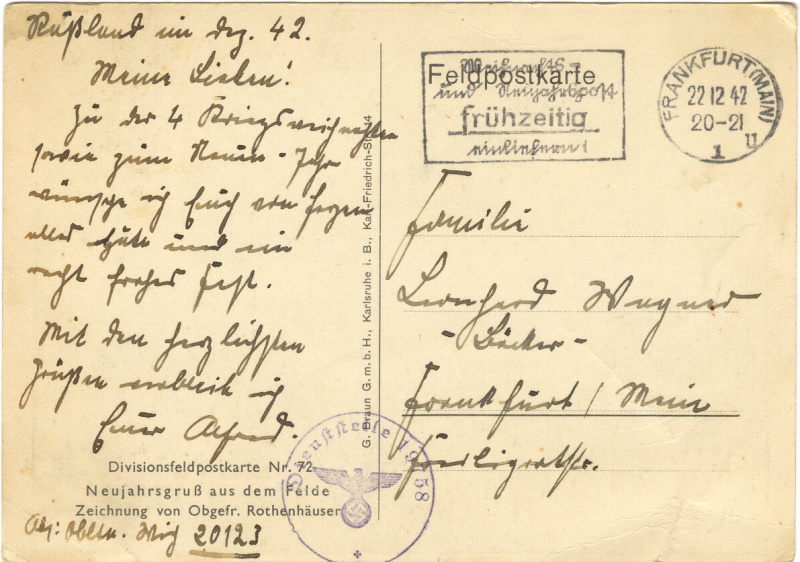 Rußland im Dez. 42.
Meine Lieben!
Zu der 4 Kriegsweihnachten
sowie zum Neuen-Jahr
wünsche ich Euch von Herzen
alles Gute und ein
recht frohes Fest.
Mit den herzlichsten
Grüßen verbleibt ich
Euer Alfred.
Divisionsfeldpostkarte Nr. 72
Neujahrsgruß aus dem Felde
Zeichnung von Obgefr. Rothenhäuser
20123
G. Braun G.m.b.H., Karlsruhe i. B., Karl-Friedrich-Str. 14
Feldpostkarte
Weihnachts-
und Neujahrspost
frühzeitig
einliefern!
FRANKFURT (MAIN)
22 12 42
20-21
1 u
Familie
Leonhard Wagner
- Bäcker -
Frankfurt / Main
Freiligrathstr.
Dienststelle